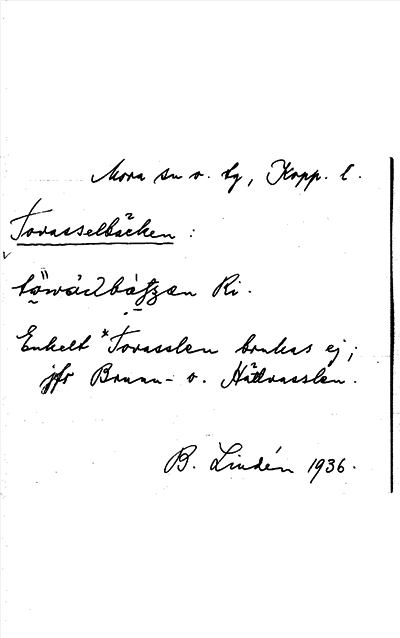 Mora sn o. tg, Kopp. l.
Tovasselbäcken :
Ri.
Enkelt *Tovasslen brukas ej;
jfr Brunn- o. Håltvasslen.
B. Lindén 1936.